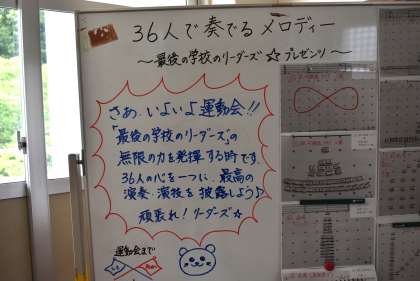 36人で奏でるメロディー
～最後の学校のリーダーズ☆☆プレゼンツ～
さあ、いよいよ運動会!!
「最後の学校のリーダーズ」の
無限の力を発揮する時です。
36人の心を一つに、最高の
演奏・演技を披露しよう♪
頑張れ!リーダーズ☆
運動会まで